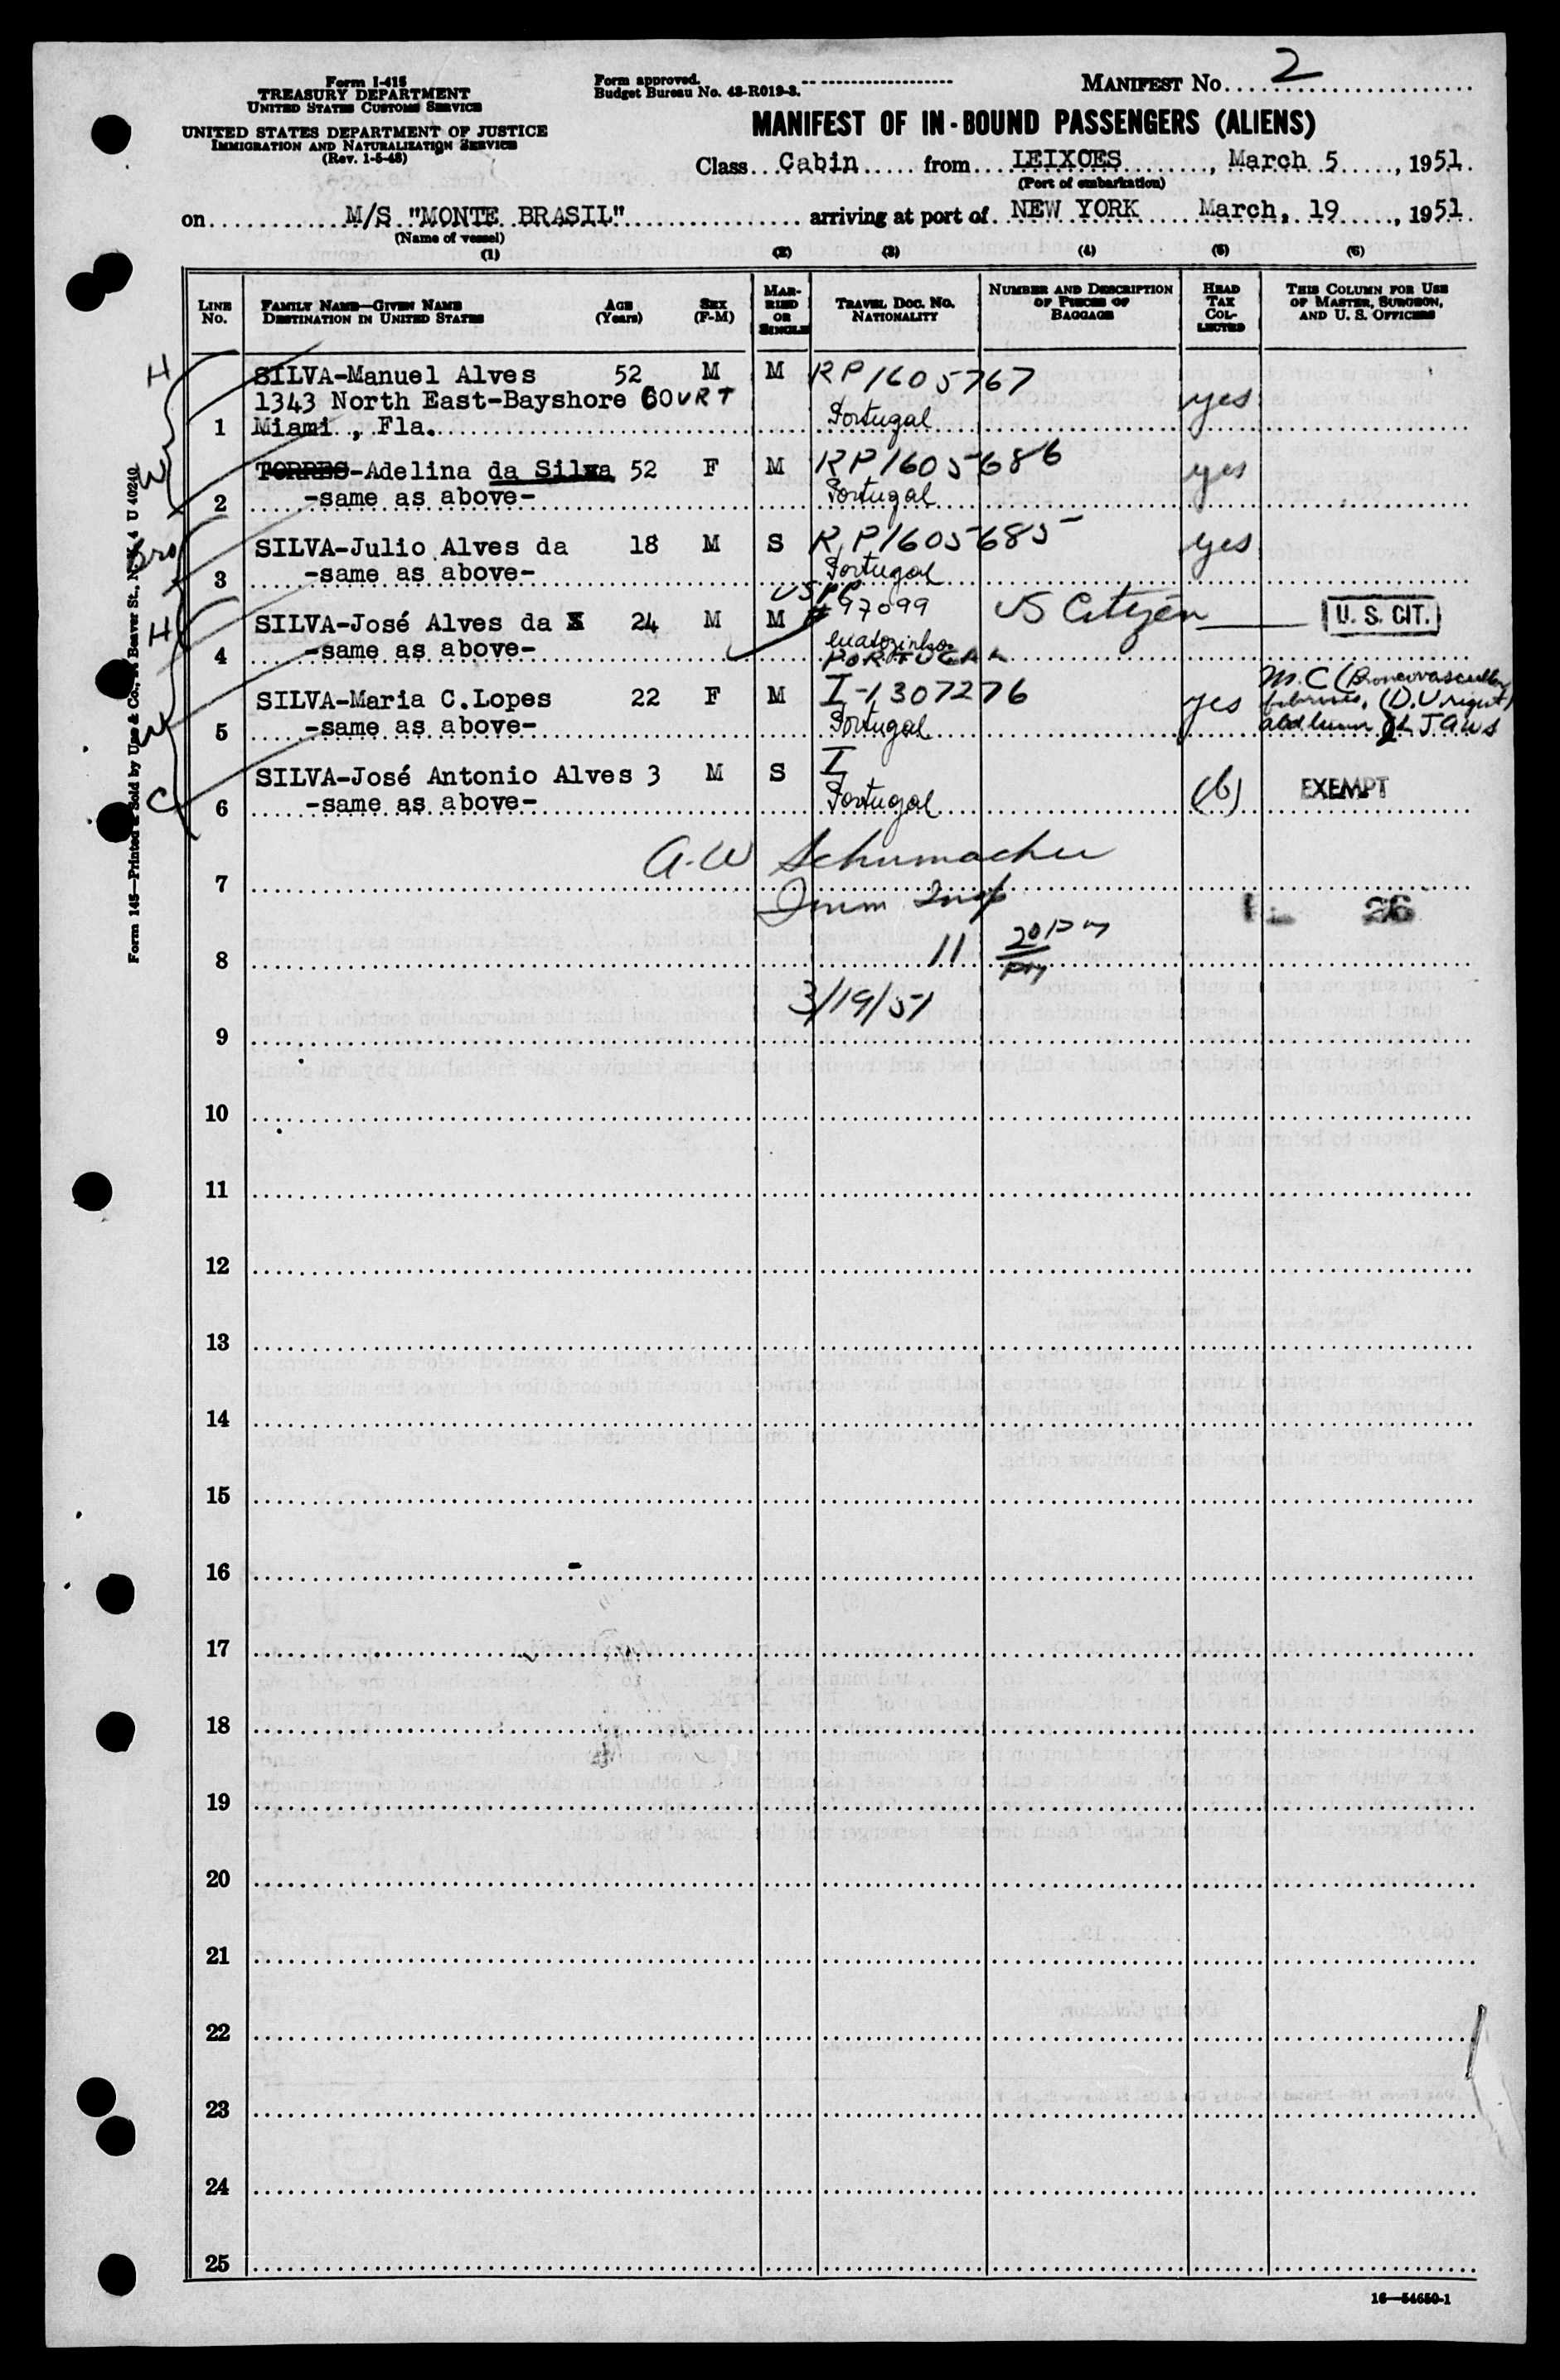 Form I-415
TREASURY DEPARTMENT
UNITED STATES CUSTOMS SERVICE
UNITED STATES DEPARTMENT OF JUSTICE
IMMIGRATION AND NATURALIZATION SERVICE
(Rev. 1-5-48)
Form approved.
Budget Bureau No. 43-R019-3.
MANIFEST No. 2
MANIFEST OF IN-BOUND PASSENGERS (ALIENS)
Class Cabin from LEIXOES, March 5, 1951
(Port of embarkation)
on M/S "MONTE BRASIL" arriving at port of NEW YORK March, 19, 1951
(Name of vessel)
(1) (2) (3) (4) (5) (6)
LINE No.
FAMILY NAME—GIVEN NAME
DESTINATION IN UNITED STATES
AGE (Years)
SEX (F-M)
MARRIED OR SINGLE
TRAVEL DOC. NO.
NATIONALITY
NUMBER AND DESCRIPTION OF PIECES OF BAGGAGE
HEAD TAX COLLECTED
THIS COLUMN FOR USE OF MASTER, SURGEON, AND U. S. OFFICERS
H
SILVA-Manuel Alves 52 M M RP1605767
1343 North East-Bayshore COURT yes
1 Miami, Fla. Portugal
W
TORRES-Adelina da Silva 52 F M RP1605686 yes
2 -same as above- Portugal
Bro
SILVA-Julio Alves da 18 M S RP1605685 yes
3 -same as above- Portugal
H
USPP
SILVA-José Alves da X 24 M M #97099 US Citizen U. S. CIT.
4 -same as above- PORTUGAL
W
SILVA-Maria C.Lopes 22 F M I-1307276 yes M.C
5 -same as above- Portugal
C
SILVA-José Antonio Alves 3 M S I (6) EXEMPT
6 -same as above- Portugal
A.W Schumacher
7
Imm Insp
26
8 11 20 pm
pm
3/19/51
9
10
11
12
13
14
15
16
17
18
19
20
21
22
23
24
25
16—54650-1